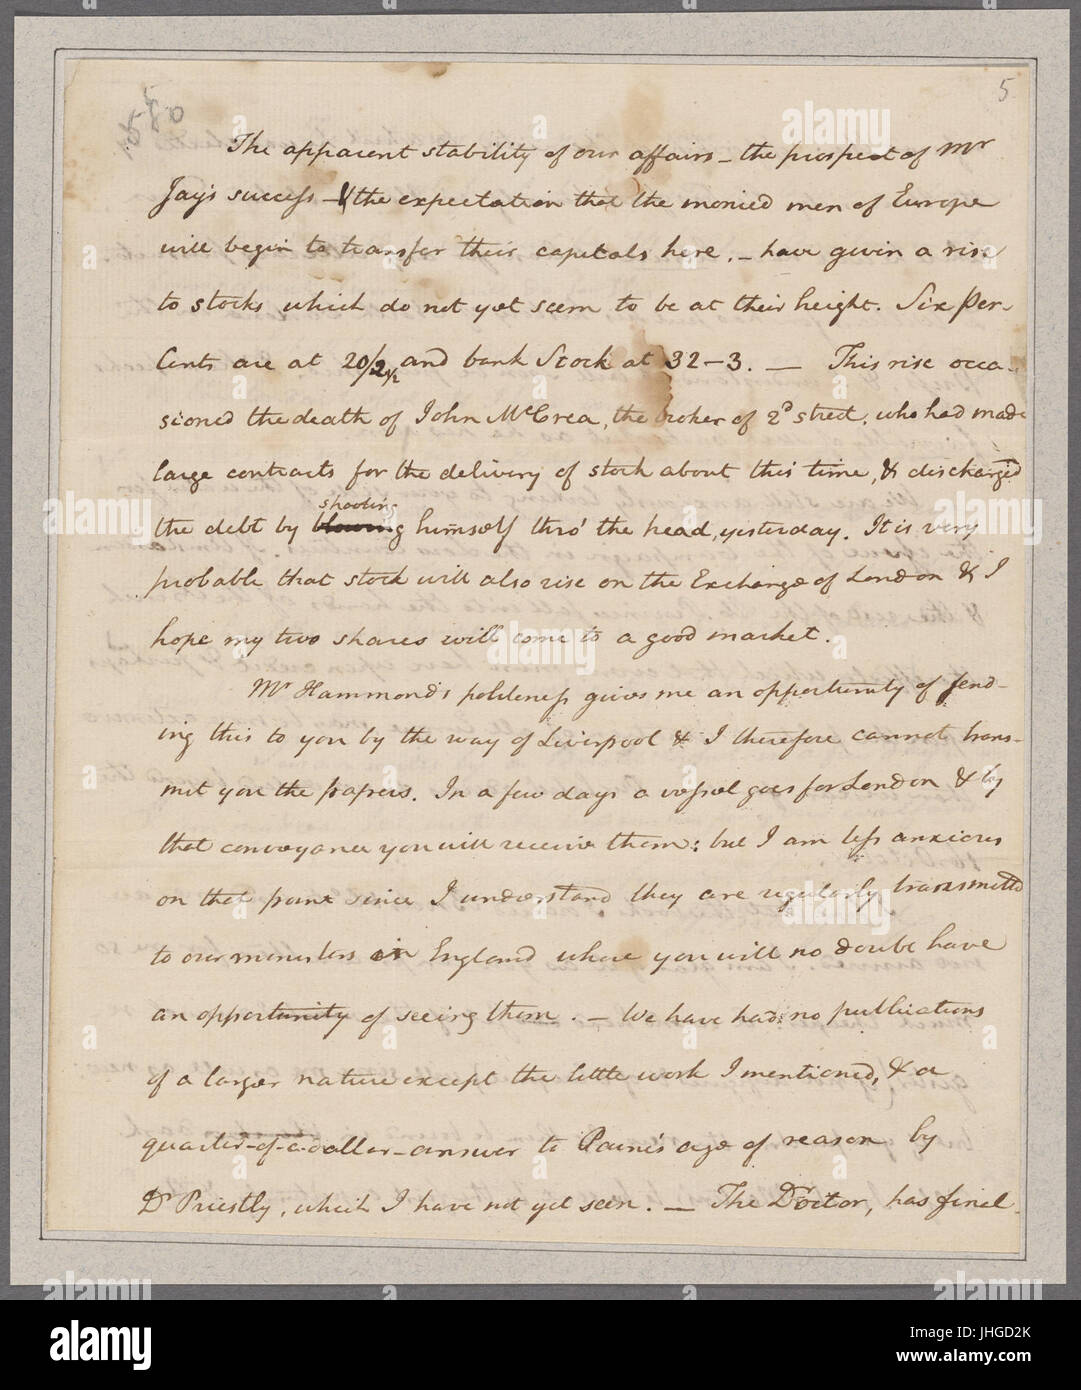 5
The apparent stability of our affairs – the prospect of Mr
Jay's success – & the expectation that the monied men of Europe
will begin to transfer their capitals here. – have given a rise
to stocks which do not yet seem to be at their height. Six per-
Cents are at 20/2½ and bank Stock at 32–3. — This rise occa-
sioned the death of John McCrea, the broker of 2d street, who had made
large contracts for the delivery of stock about this time, & discharg'd
the debt by blowing shooting himself thro' the head, yesterday. It is very
probable that stock will also rise on the Exchange of London & I
hope my two shares will come to a good market.
Mr Hammond's politeness gives me an opportunity of send-
ing this to you by the way of Liverpool & I therefore cannot trans-
mit you the papers. In a few days a vessel goes for London & by
that conveyance you will receive them: but I am less anxious
on that point since I understand they are regularly transmitted
to our ministers in England where you will no doubt have
an opportunity of seeing them. – We have had no publications
of a larger nature except the little work I mentioned, & a
quarter-of-a-dollar-answer to Paine's age of reason by
Dr Priestly, which I have not yet seen. — The Doctor, has final
alamy
Image ID: JHGD2K
www.alamy.com